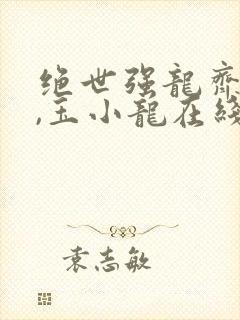 绝世强龍齊
,王小龍在綫
袁志敏